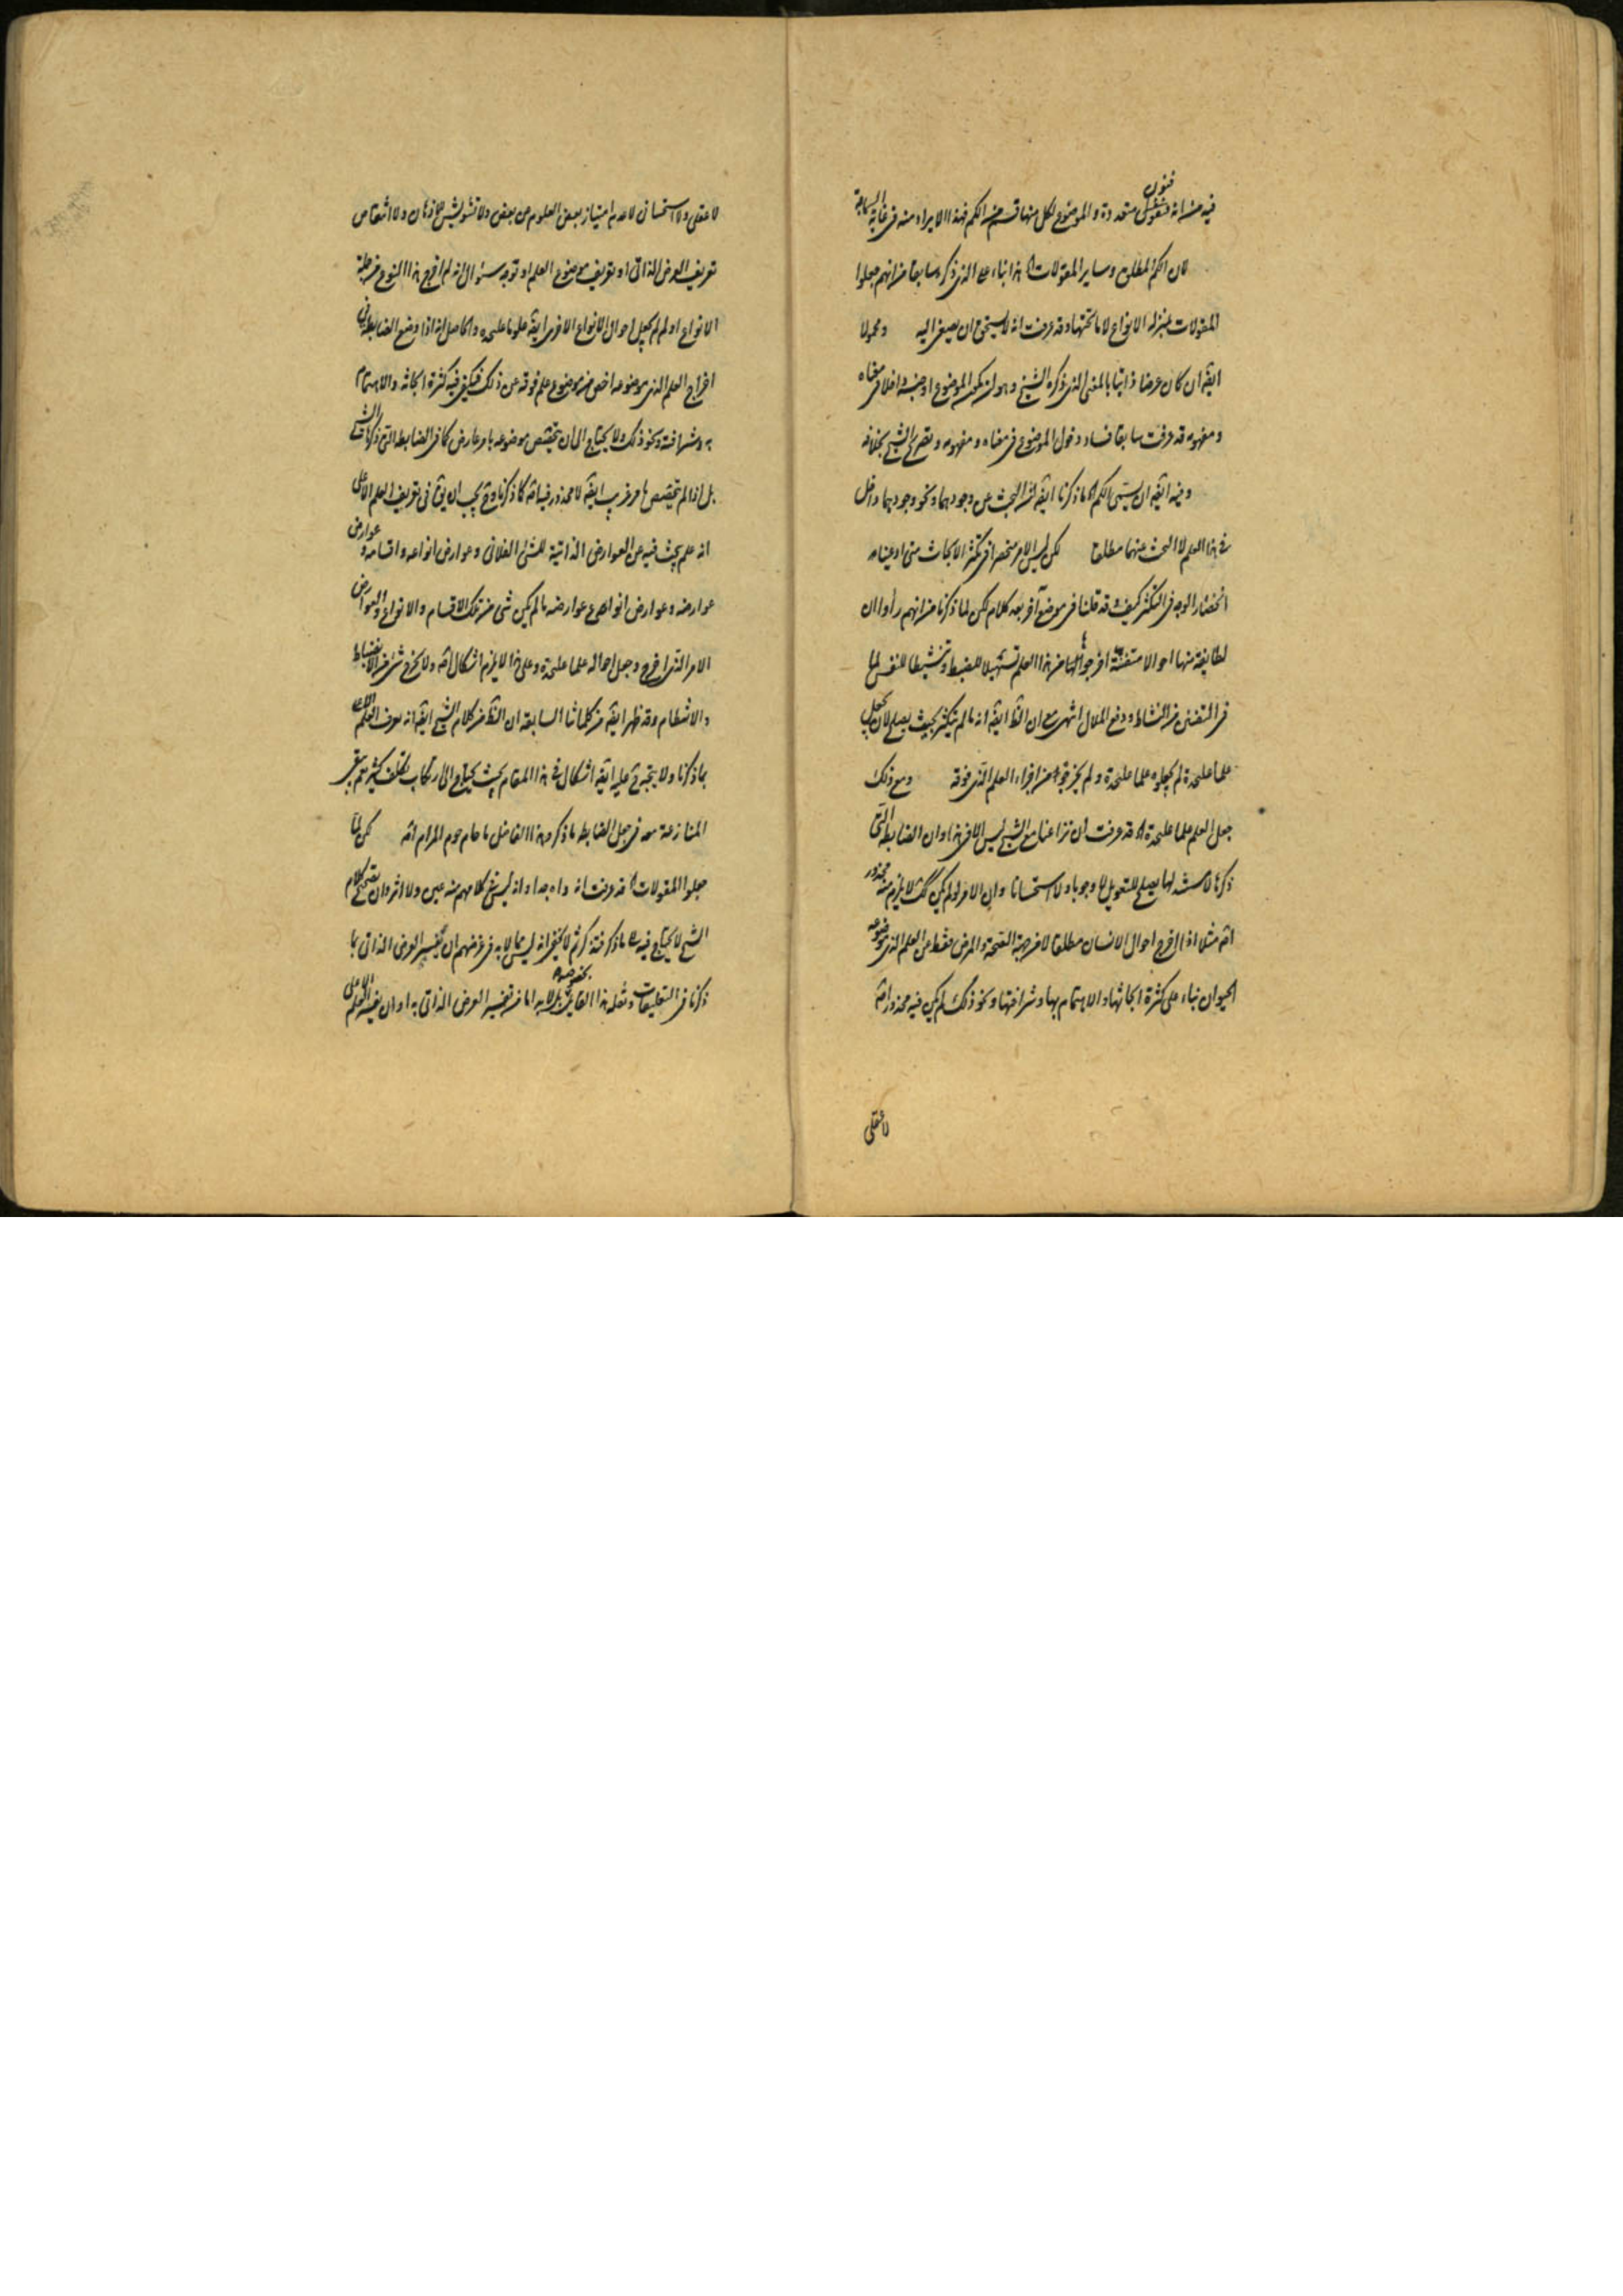 فيه من انه فنون متعددة والموضوع لكل منها قسم من الكم فهذا الايراد منه في غاية
لان الكم المطلق وساير المقولات بناء على الذي ذكره سابقا من انهم جعلوا
المقولات بمنزلة الانواع لا ما تحتها وقد عرفت انه لا يستحق ان يصغى اليه ومحمولا
ايضا ان كان عرضا ذاتيا بالمعنى الذي ذكره الشيخ وهو ان يكون الموضوع او جنسه داخلا في معناه
ومفهومه قد عرفت سابقا فساد دخول الموضوع في معناه ومفهومه وتصريح الشيخ بخلافه
وفيه ايضا ان يستثنى الكم لما ذكرنا ايضا من ان البحث عن وجودهما ونحو وجودهما داخل
في هذا العلم لا البحث عنهما مطلقا لكن ليس الامر منحصرا في تكثر الابحاث متى ادعينا
انحصار الوجه في التكثر كيف وقد قلنا في موضع آخر بعد كلام لكن لما ذكرنا من انهم رأوا ان
لطايفة منها احوالا متفننة اخرجوا من هذا العلم تسهيلا للضبط وتنشيطا للنفس لما
في التفنن من النشاط ودفع الملال انتهى مع ان ايضا انه ما لم يتكثر بحيث يصلح لان يجعل
علما عليحدة لم يجعلوه علما عليحدة ولم يخرجوه من اجزاء العلم الذي فوقه ومع ذلك
جعل العلم علما عليحدة قد عرفت ان نزاعنا مع الشيخ ليس الا في هذا وان الضابطة التي
ذكرها لا سند لها يصلح للتعويل لا وجوبا ولا استحسانا وان الامر لو لم يكن كذلك لا يلزم منه محذور
مثلا اذا اخرج احوال الانسان مطلقا لا من جهة الصحة والمرض فقط عن العلم الذي موضوعه
الحيوان بناء على كثرة ابحاثها والاهتمام بها وشرافتها ونحو ذلك لم يكن فيه محذور
لا عقلي
لا عقلي ولا استحساني لا عدم امتياز بعض العلوم عن بعض ولا تشويش الاذهان ولا انتقاص
تعريف العرض الذاتي او تعريف موضوع العلم او توجه سؤال انه لم اخرج هذا النوع من جملة
الانواع او لم لم يجعل احوال الانواع الاخرى ايضا علوما عليحدة والحاصل انه اذا وضع الضابطة في
اخراج العلم الذي موضوعه اخص من موضوع علم فوقه عن ذلك فيكفي فيه كثرة ابحاثه والاهتمام
به وشرافته ونحو ذلك ولا يحتاج الى ان يختص موضوعه بامر عارض كما في الضابطة التي ذكرها الشيخ
بل اذا لم تختص بامر غريب ايضا لا محذور فيه كما ذكرنا وح يجب ان يقال في تعريف العلم الاعلى
انه علم يبحث فيه عن العوارض الذاتية للشئ الفلاني وعوارض انواعه واقسامه وعوارض
عوارضه وعوارض انواع عوارضه ما لم يكن شئ من تلك الاقسام والانواع والعوارض
الامر الذي اخرج وجعل احواله علما عليحدة وعلى هذا لا يلزم اشكال ولا يخرج شئ من الانضباط
والانتظام وقد ظهر ايضا من كلماتنا السابقة ان من كلام الشيخ ايضا انه عرف العلم الاعلى
بما ذكرنا ولا يتجه عليه ايضا اشكال في هذا المقام بحيث يحتاج الى ارتكاب تكلف كثير نعم بقي
المنازعة معه في جعل الضابطة ما ذكره وهذا الفاضل ما حام حوم المرام لكن لما
جعلوا المقولات قد عرفت انه واه جدا وانه ليس في كلامهم منه عين ولا اثر وان تصحيح كلام
الشيخ لا يحتاج فيه الى ما ذكر فتذكر ثم لا يخفى انه ليس مما لا بد في غرضهم ان تفسير العرض الذاتي بما
ذكرنا في التعليقات ونقله هذا القايل بخصوصه بل لا بد اما من تفسير العرض الذاتي به او ان يفسر العلم الاعلى